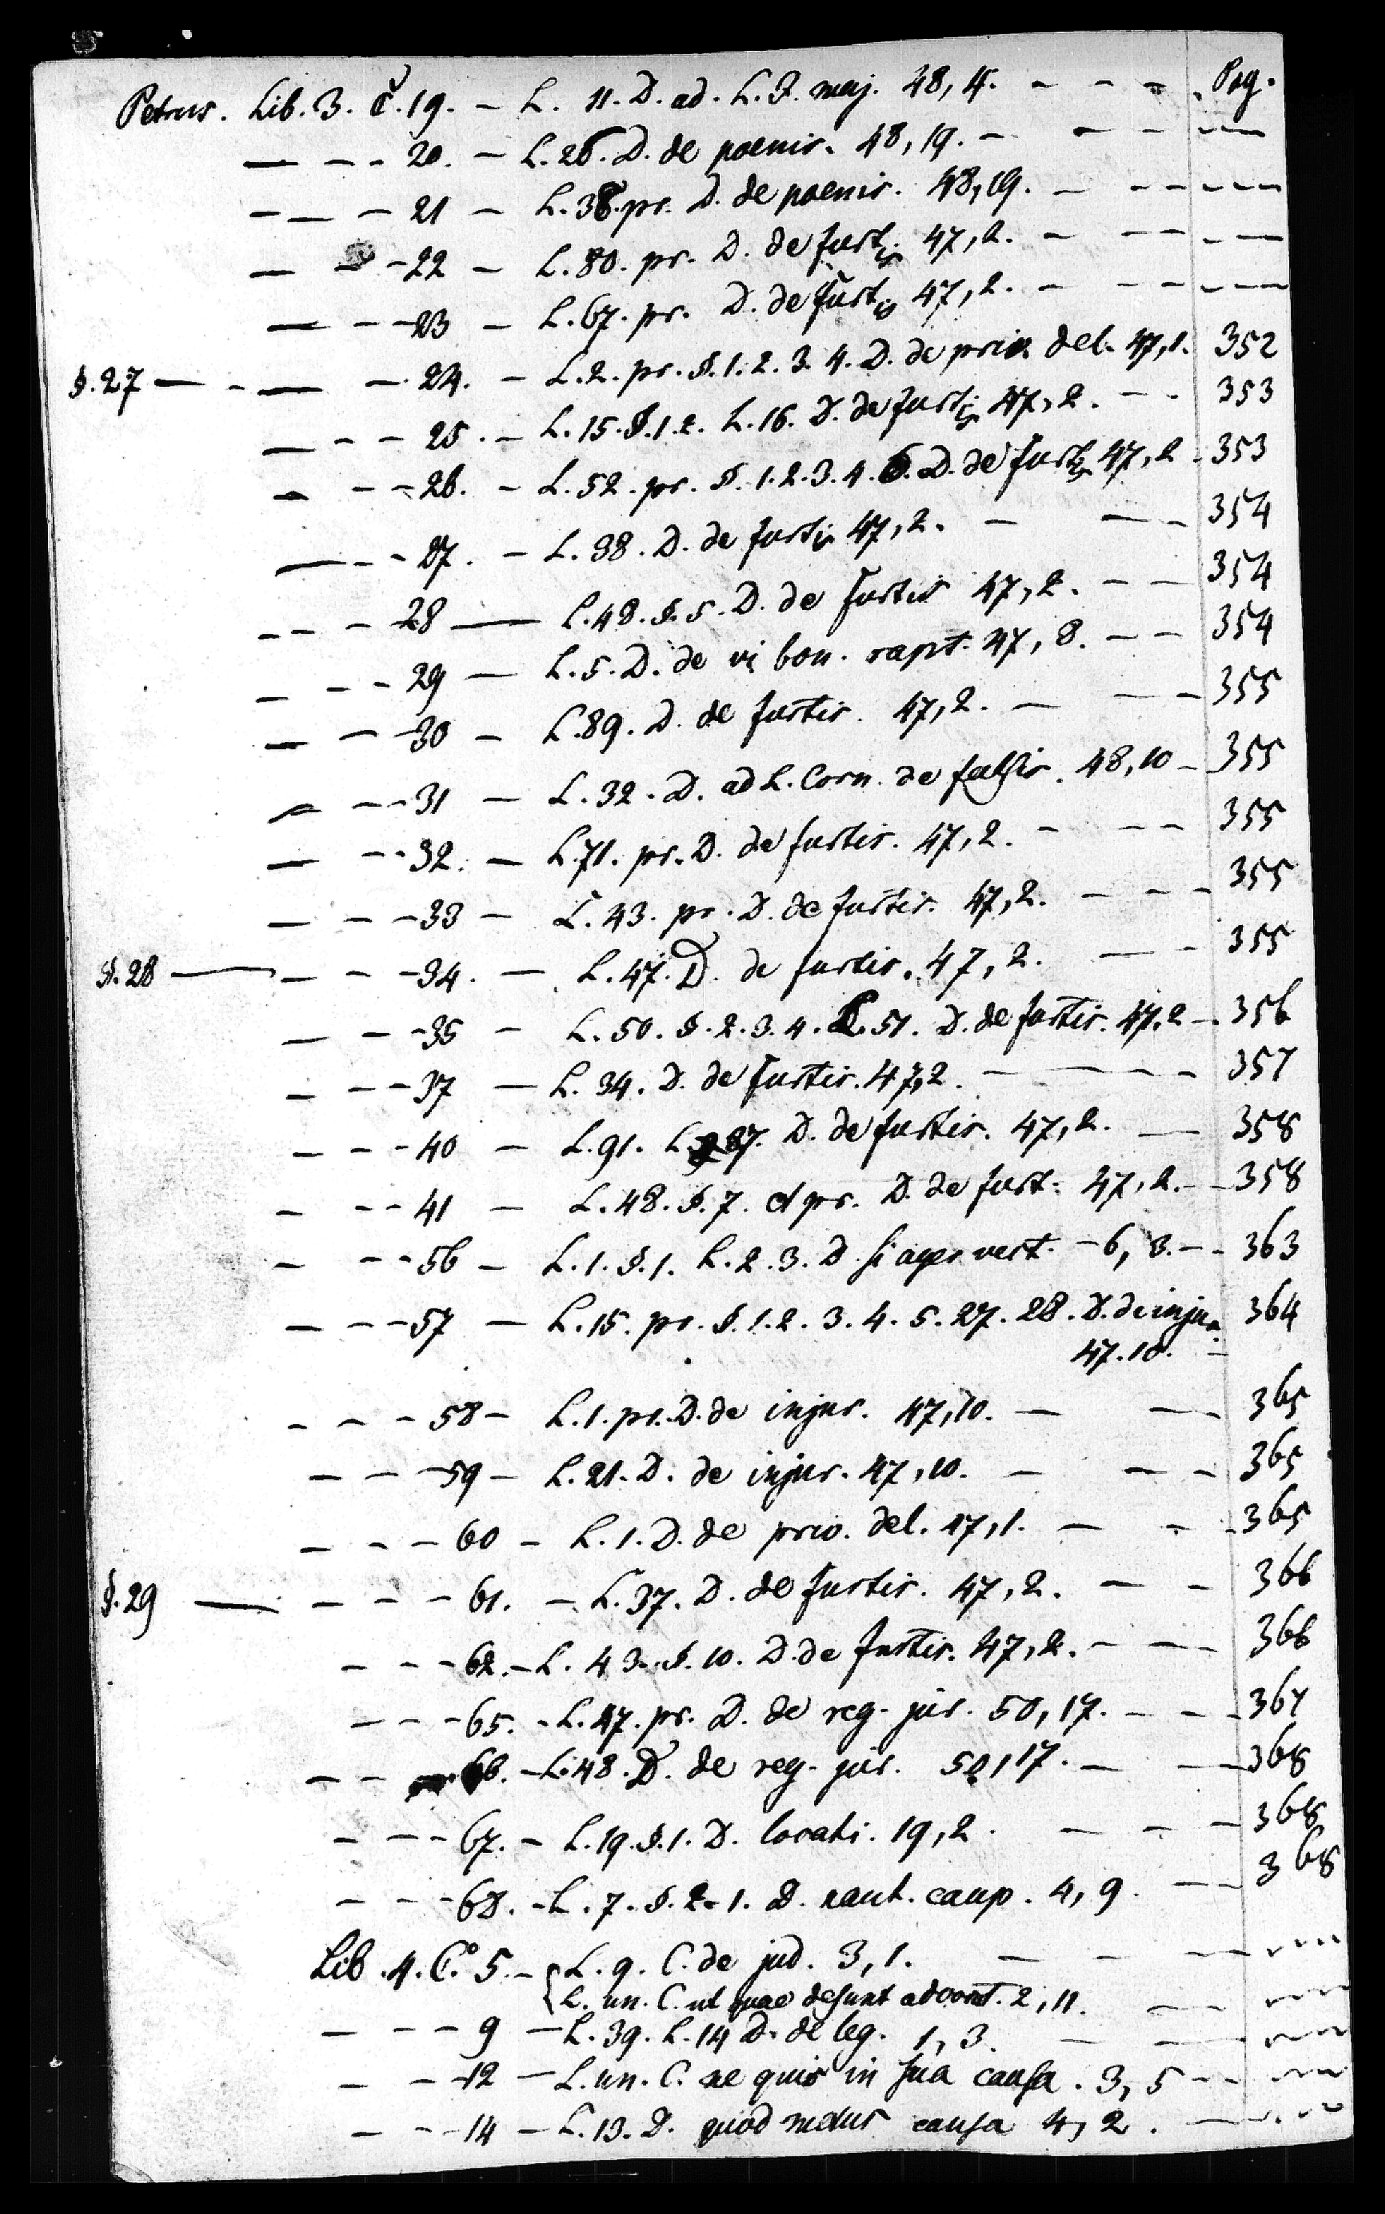 Petrus. Lib. 3. C. 19. - L. 11. D. ad. L. J. maj. 48, 4. - - - Pag.
— - - 20. - L. 26. D. de poenis. 48, 19. - - - -
- - - 21 - L. 38. pr. D. de poenis. 48, 19. - - - -
- - - 22 - L. 80. pr. D. de furtis 47, 2. - - - -
— - - 23 - L. 67. pr. D. de furtis 47, 2. - - - -
§. 27 — - — - 24. - L. 2. pr. §. 1. 2. 3. 4. D. de priv. del. 47, 1. 352
- - - 25. - L. 15. §. 1. 2. L. 16. D. de furtis 47, 2. - - 353
- - - 26. - L. 52. pr. §. 1. 2. 3. 4. 6. D. de furtis 47, 2 - 353
- - - 27. - L. 38. D. de furtis 47, 2. - - - 354
- - - 28 — L. 48. §. 5. D. de furtis 47, 2. - - 354
- - - 29 - L. 5. D. de vi bon. rapt. 47, 8. - - 354
- - - 30 - L. 89. D. de furtis. 47, 2. - - - 355
- - - 31 - L. 32. D. ad L. Corn. de falsis. 48, 10 - 355
- - - 32. - L. 71. pr. D. de furtis. 47, 2. - - - 355
- - - 33 - L. 43. pr. D. de furtis. 47, 2. - - - 355
§. 28 — - - - 34. - L. 47. D. de furtis. 47, 2. - - 355
- - - 35 - L. 50. §. 2. 3. 4. L. 51. D. de furtis. 47. 2 - 356
- - - 37 - L. 34. D. de furtis. 47, 2. - - - - 357
- - - 40 - L. 91. L. 37. D. de furtis. 47, 2. - 358
- - - 41 - L. 48. §. 7. et pr. D. de furt. 47, 2. - - 358
- - - 56 - L. 1. §. 1. L. 2. 3. D. si ager vect. - 6, 3. - - 363
- - - 57 - L. 15. pr. §. 1. 2. 3. 4. 5. 27. 28. D. de injur. 364
47. 10. -
- - - 58 - L. 1. pr. D. de injur. 47, 10. - - - 365
- - - 59 - L. 21. D. de injur. 47, 10. - - - 365
- - - 60 - L. 1. D. de priv. del. 47, 1. - - - 365
§. 29 — - - - 61. - L. 37. D. de furtis. 47, 2. - - 366
- - - 62. - L. 43. §. 10. D. de furtis. 47, 2. - - - 366
- - - 65. - L. 47. pr. D. de reg. jur. 50, 17. - - - 367
- - 66. - L. 48. D. de reg. jur. 50, 17. - - 368
- - - 67. - L. 19. §. 1. D. locati. 19, 2. - - - 368
- - - 68. - L. 7. §. 2. 1. D. naut. caup. 4, 9. - - 368
Lib. 4. C. 5. - L. 9. C. de jud. 3, 1. - - -
L. un. C. ut quae desunt advocat. 2, 11. -
- - - 9 - L. 39. L. 14 D. de leg. 1, 3. - - -
- - 12 - L. un. C. ne quis in sua causa. 3, 5 - -
- - 14 - L. 13. D. quod metus causa 4, 2. -